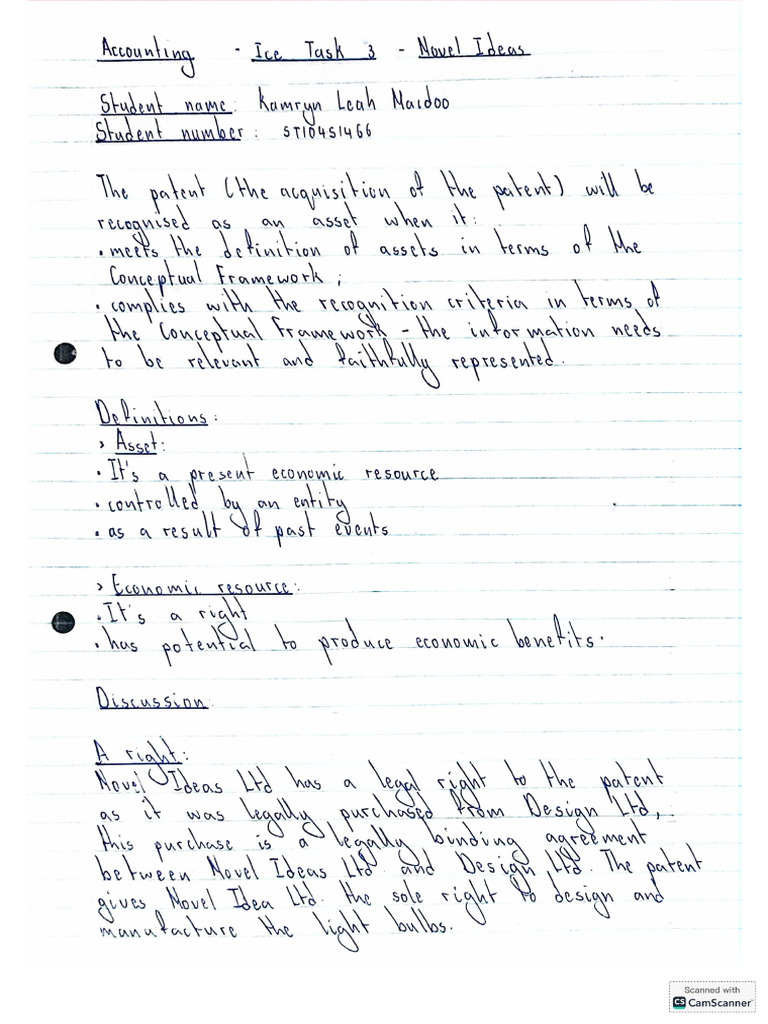 Accounting - Ice Task 3 - Novel Ideas
Student name: Kamryn Leah Naidoo
Student number: ST10451466
The patent (the acquisition of the patent) will be
recognised as an asset when it:
• meets the definition of assets in terms of the
Conceptual Framework;
• complies with the recognition criteria in terms of
the Conceptual Framework - the information needs
to be relevant and faithfully represented.
Definitions:
> Asset:
• It's a present economic resource
• controlled by an entity
• as a result of past events
> Economic resource:
• It's a right
• has potential to produce economic benefits.
Discussion
A right:
Novel Ideas Ltd has a legal right to the patent
as it was legally purchased from Design Ltd,
this purchase is a legally binding agreement
between Novel Ideas Ltd. and Design Ltd. The patent
gives Novel Idea Ltd. the sole right to design and
manufacture the light bulbs.
Scanned with
CS CamScanner